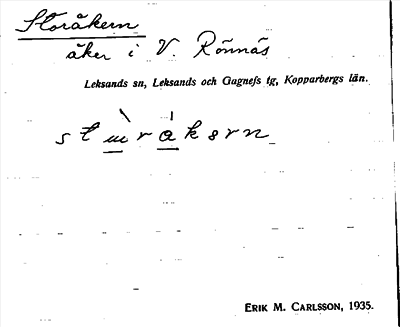 Storåkern
åker i V. Rönnäs
Leksands sn, Leksands och Gagnefs tg, Kopparbergs län.
ERIK M. CARLSSON, 1935.